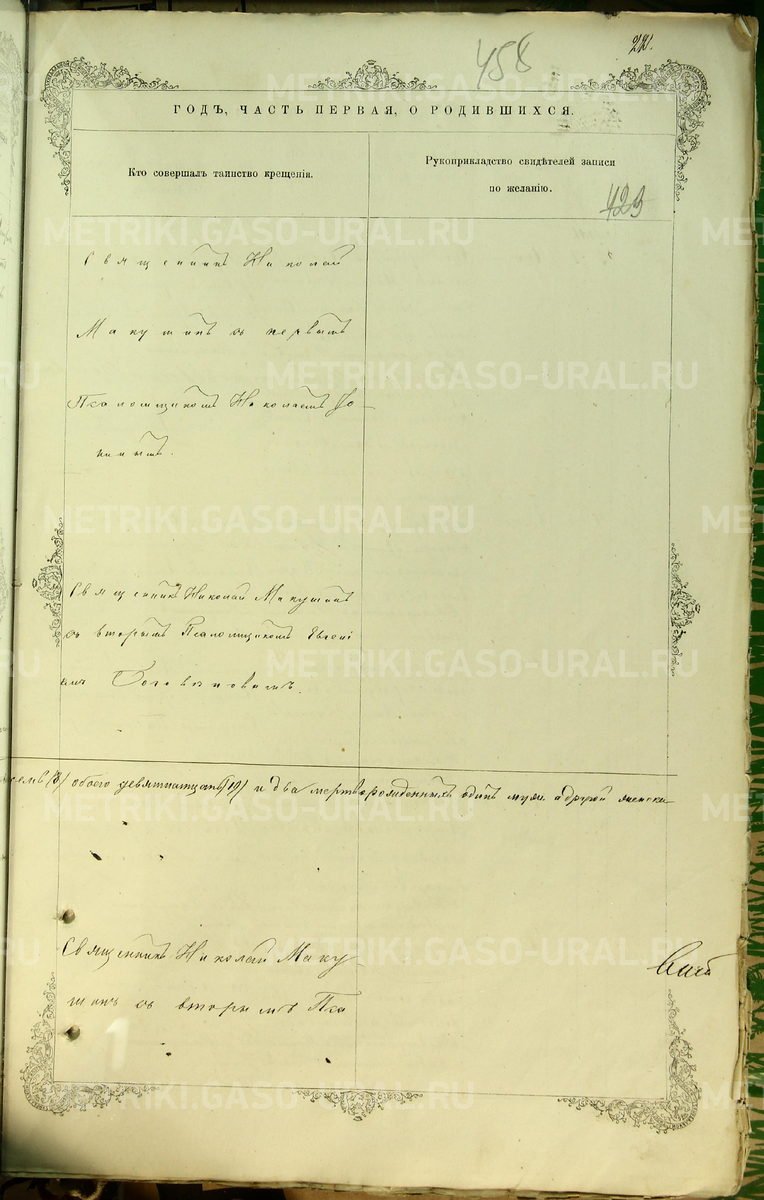 458
22.
ГОДЪ, ЧАСТЬ ПЕРВАЯ, О РОДИВШИХСЯ.
Кто совершалъ таинство крещенія.
Рукоприкладство свидѣтелей записи
по желанію.
423
Священникъ Николай
Макушинъ съ первымъ
Псаломщикомъ Николаемъ
Священникъ Николай Макушинъ
съ вторымъ Псаломщикомъ Евгені
емъ Боголѣповымъ.
семь (8) обоего девятнатцать (19) и два мертворожденныхъ одинъ муж. а другой женски
Священникъ Николай Маку-
шинъ съ вторымъ Пса
METRIKI.GASO-URAL.RU